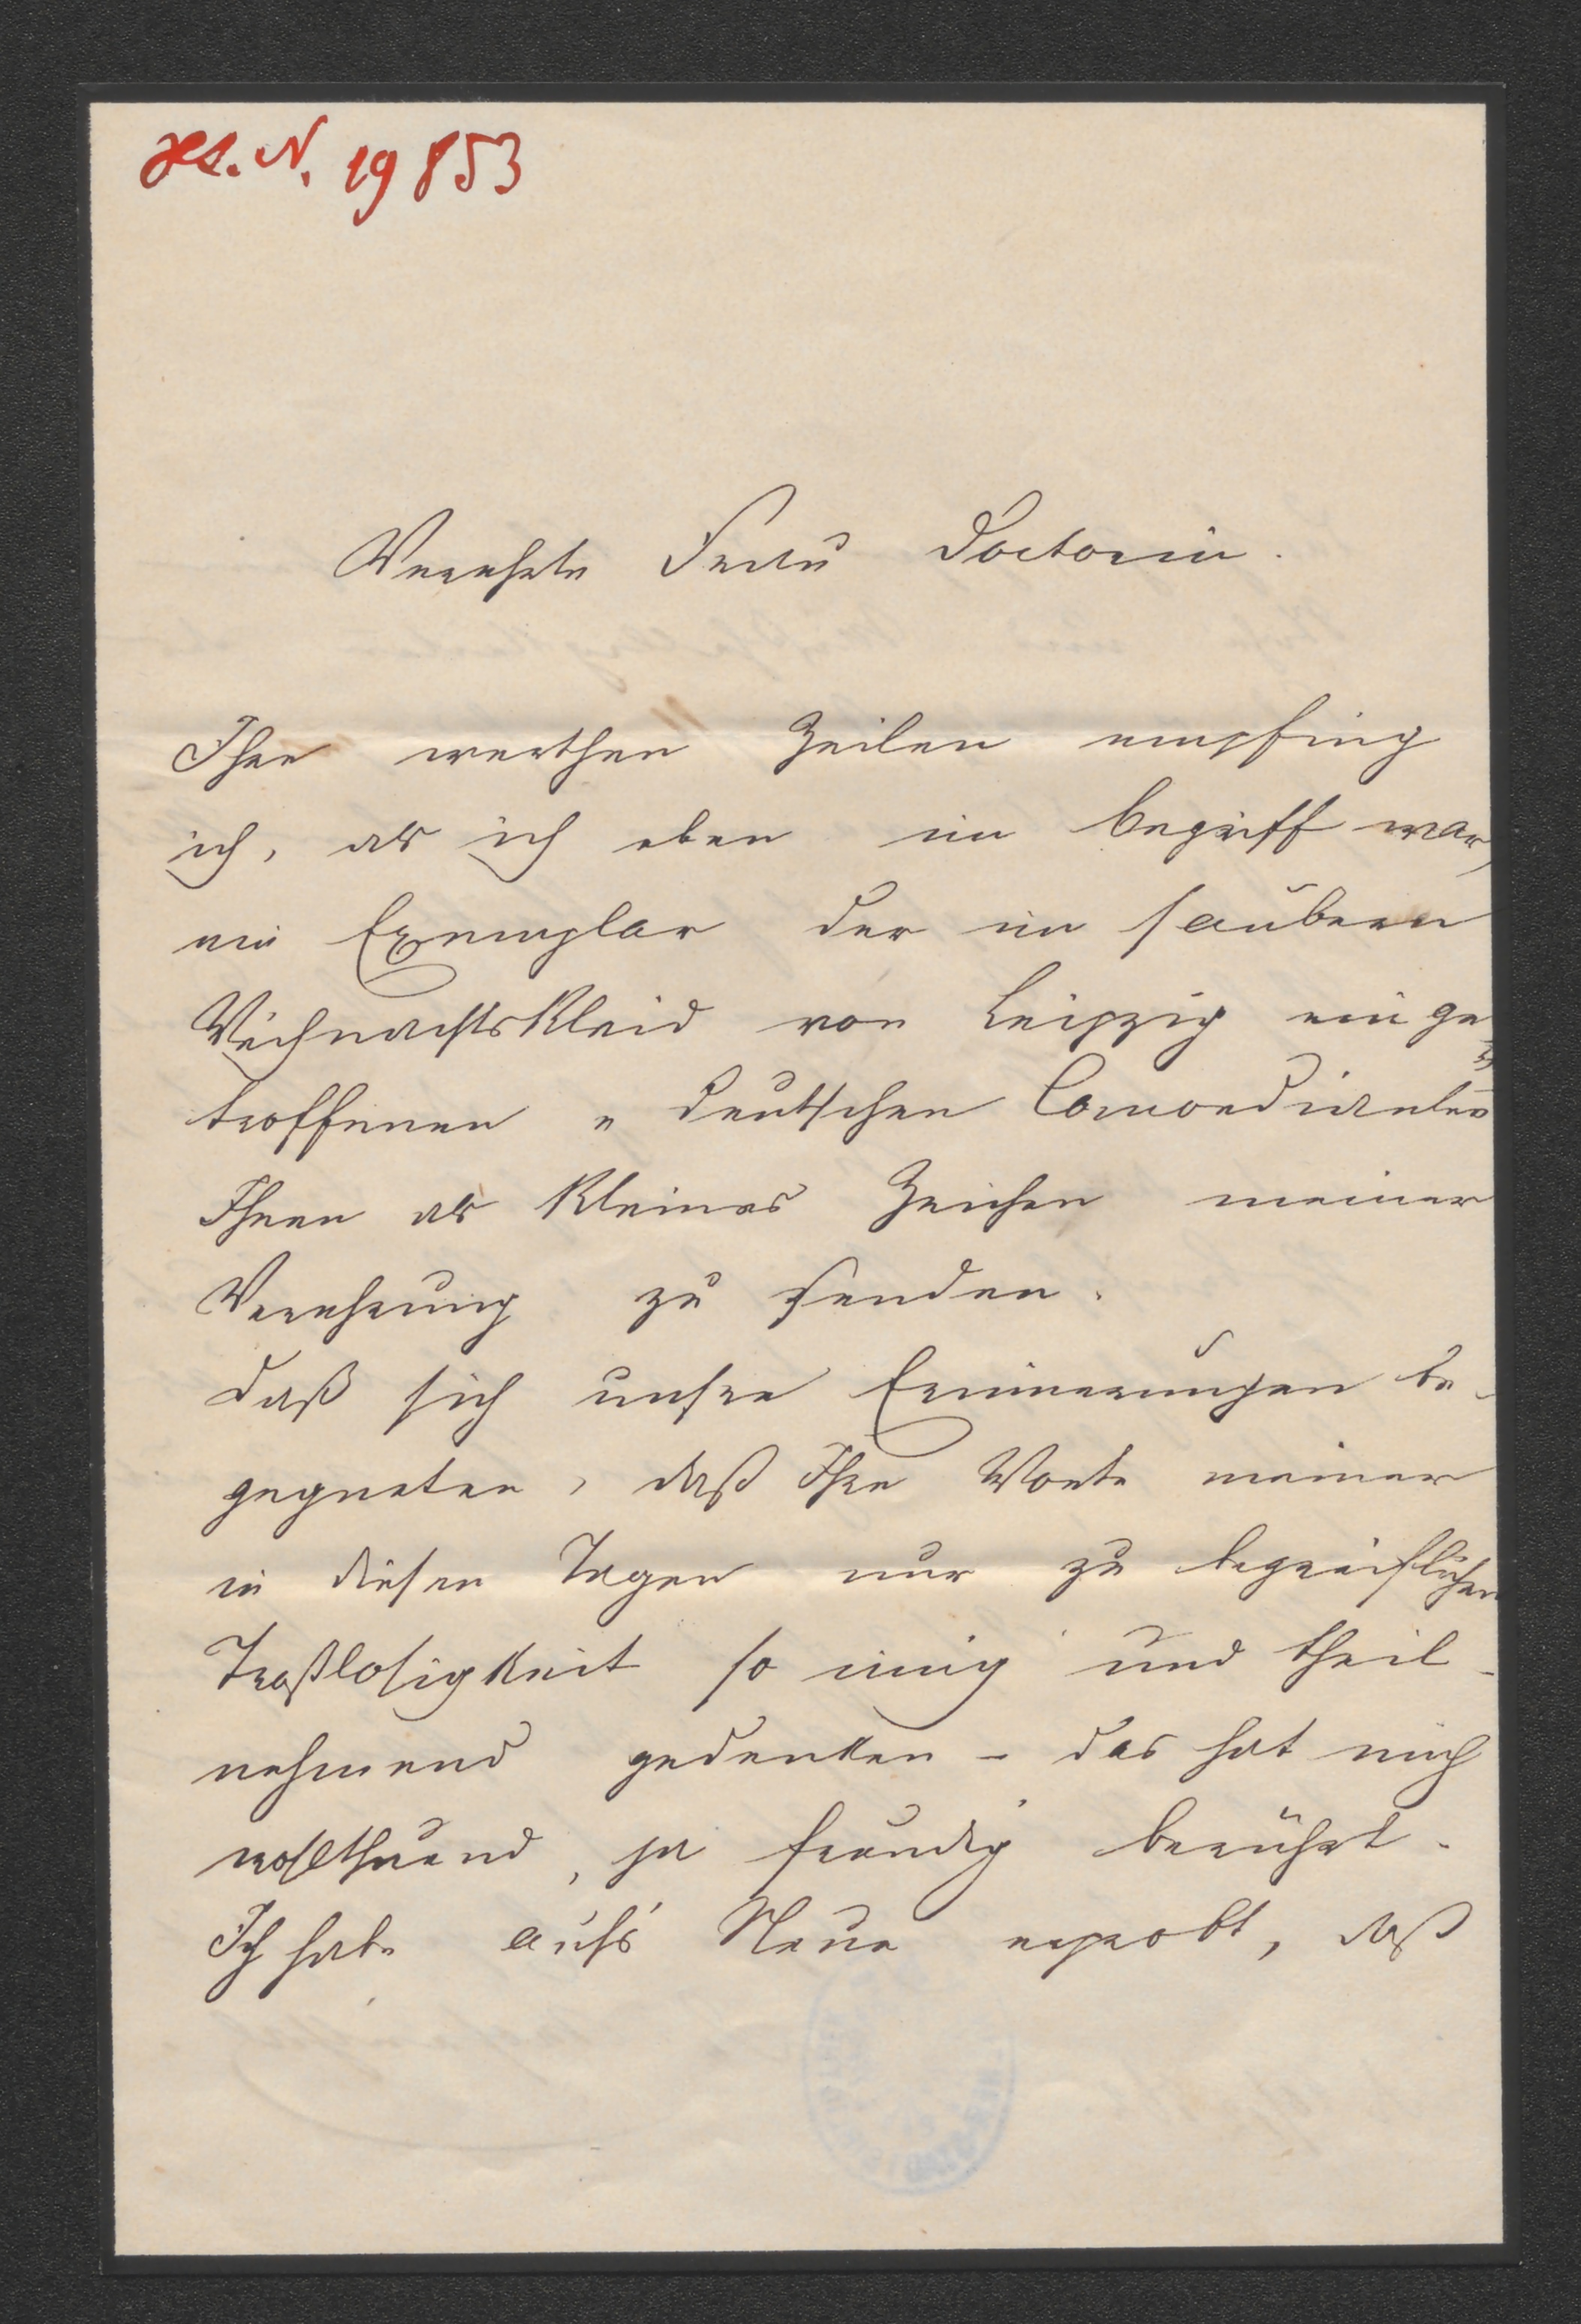 Hs. N. 19853
Verehrte Frau Doctorin.
Ihre werthen Zeilen empfing
ich, als ich eben im Begriff war,
ein Exemplar der im saubern
Weihnachtskleid von Leipzig einge
troffenen „deutschen Comoedianten"
Ihnen als kleines Zeichen meiner
Verehrung zu senden.
Daß sich unsre Erinnerungen be-
gegneten, daß Ihre Worte meiner
in diesen Tagen nur zu begreiflichen
Trostlosigkeit so innig und theil-
nehmend gedenken – das hat mich
wohlthuend, ja freudig berührt.
Ich habe auf's Neue erprobt, daß